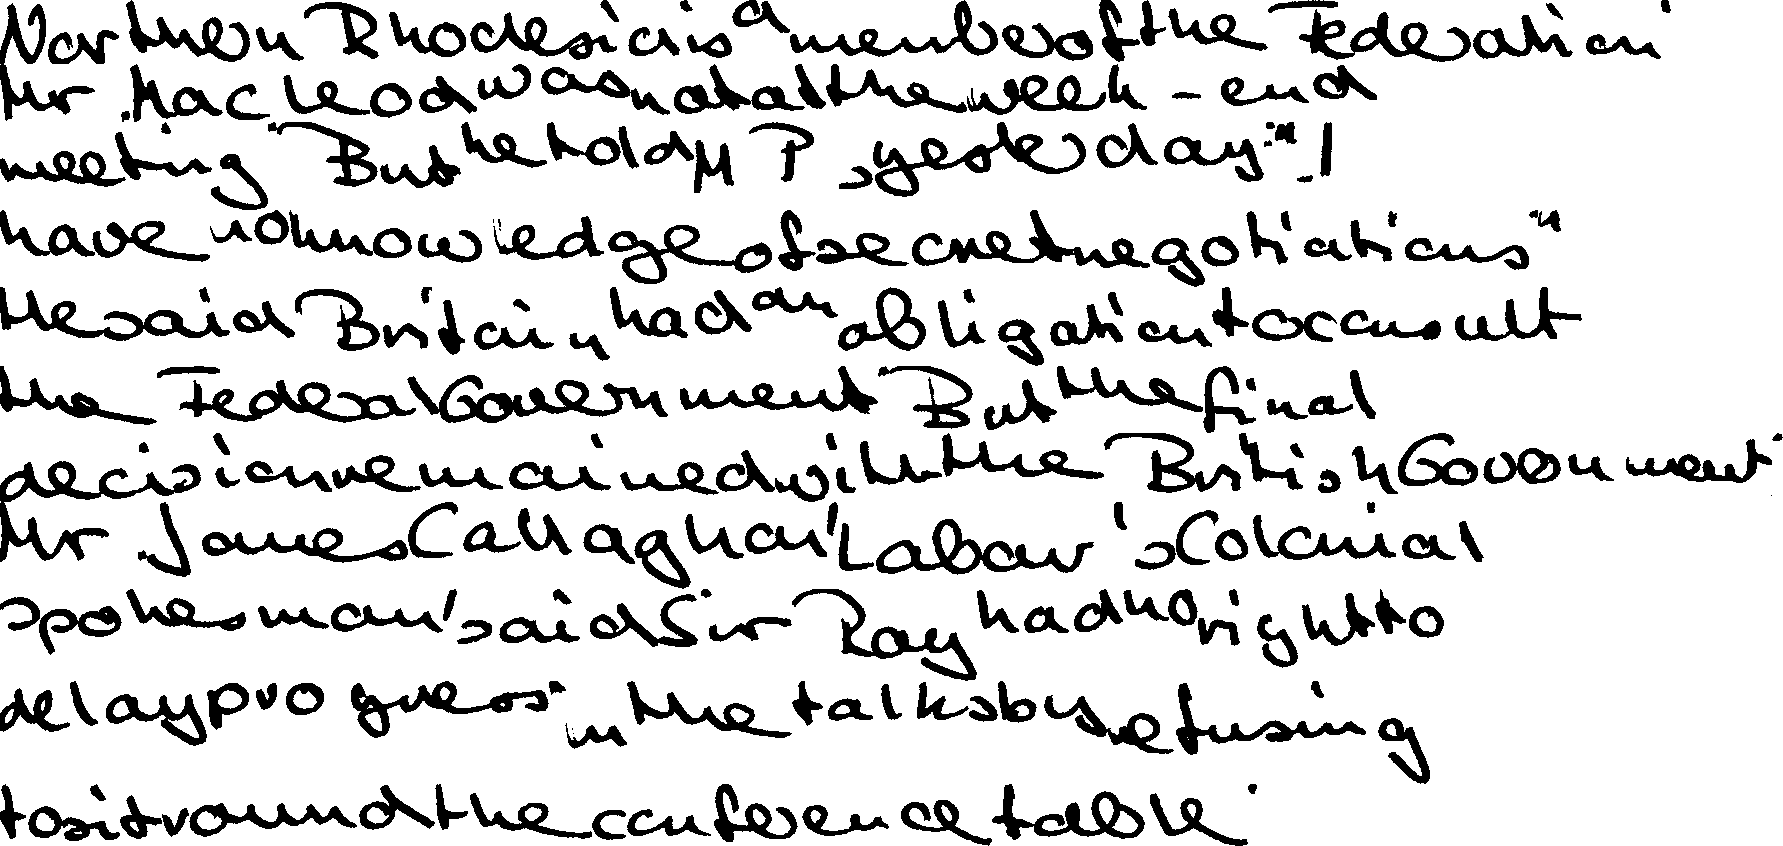 Northern Rhodesia is a member of the Federation.
Mr. Macleod was not at the week-end
meeting. But he told M Ps yesterday: "I
have no knowledge of secret negotiations."
He said Britain had an obligation to consult
the Federal Government. But the final
decision remained with the British Government.
Mr. James Callaghan, Labour's Colonial
spokesman, said Sir Roy had no right to
delay progress in the talks by refusing
to sit round the conference table.